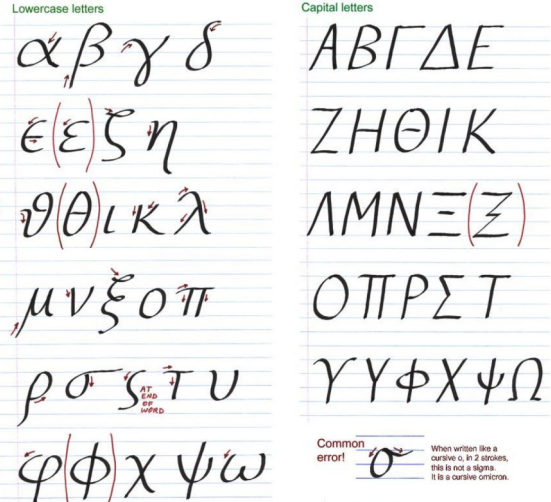 Lowercase letters
α β γ δ
ϵ (ε) ζ η
ϑ (θ) ι κ λ
μ ν ξ ο π
ρ σ ς τ υ
AT
END
OF
WORD
φ (ϕ) χ ψ ω
Capital letters
Α Β Γ Δ Ε
Ζ Η Θ Ι Κ
Λ Μ Ν Ξ (Ξ)
Ο Π Ρ Σ Τ
ϒ Υ Φ Χ Ψ Ω
Common
error!
σ
When written like a
cursive o, in 2 strokes,
this is not a sigma.
It is a cursive omicron.